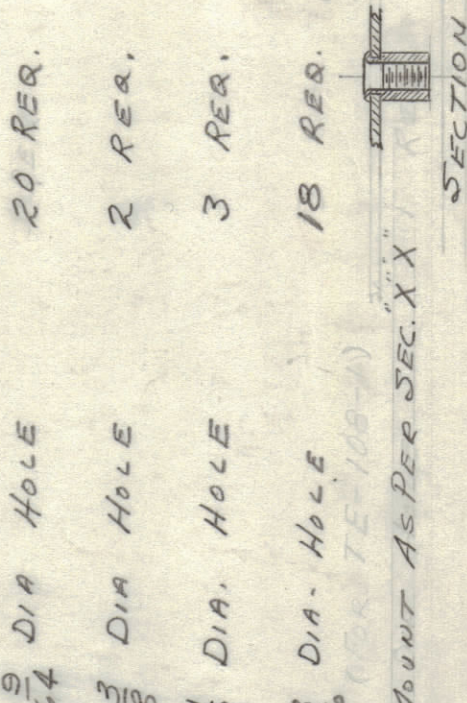 9/64 DIA HOLE 20 REQ.
DIA HOLE 2 REQ.
DIA. HOLE 3 REQ.
DIA- HOLE 18 REQ.
(FOR TE-108-1)
MOUNT AS PER SEC. XX
SECTION